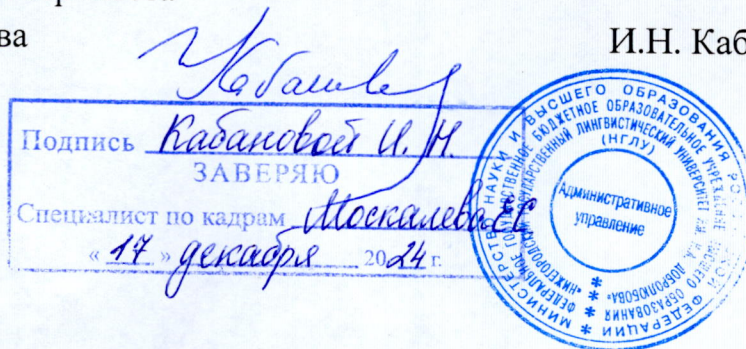 ва
И.Н. Каб
Подпись Кабановой И. Н.
ЗАВЕРЯЮ
Специалист по кадрам Москалева ЕС
« 17 » декабря 2024 г.
МИНИСТЕРСТВО НАУКИ И ВЫСШЕГО ОБРАЗОВАНИЯ РОССИЙСКОЙ ФЕДЕРАЦИИ
ФЕДЕРАЛЬНОЕ ГОСУДАРСТВЕННОЕ БЮДЖЕТНОЕ ОБРАЗОВАТЕЛЬНОЕ УЧРЕЖДЕНИЕ ВЫСШЕГО ОБРАЗОВАНИЯ
«НИЖЕГОРОДСКИЙ ГОСУДАРСТВЕННЫЙ ЛИНГВИСТИЧЕСКИЙ УНИВЕРСИТЕТ ИМ. Н.А. ДОБРОЛЮБОВА»
(НГЛУ)
Административное
управление